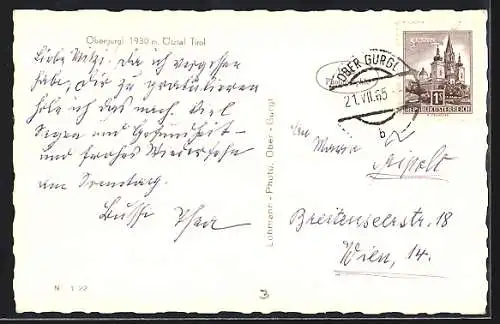 Obergurgl 1930 m. Ötztal Tirol
Liebe Mitzi. Da ich vergessen
habe, Dir zu gratulieren
hole ich das nach. Viel
Segen und Gesundheit -
und frohes Wiedersehen
am Sonntag.
Bussi Thea
N 1 22
Lohmann - Photo, Ober-Gurgl
3
OBER GURGL
21.VII.65
b
1S
REPUBLIK ÖSTERREICH
Maria
Breitenseerstr. 18
Wien, 14.